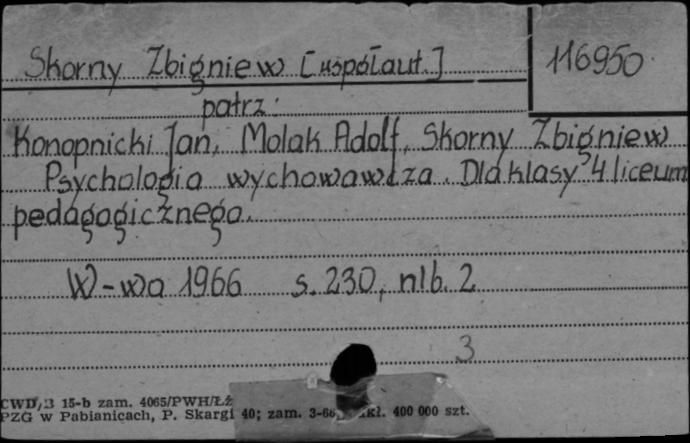 Skorny Zbigniew [współaut.] 116950
patrz:
Konopnicki Jan, Molak Adolf, Skorny Zbigniew
Psychologia wychowawcza. Dla klasy 4 liceum
pedagogicznego.
W-wa 1966 s. 230, nlb. 2
3
CWD/3 15-b zam. 4065/PWH/ŁŻ
PZG w Pabianicach, P. Skargi 40; zam. 3-66 kł. 400 000 szt.